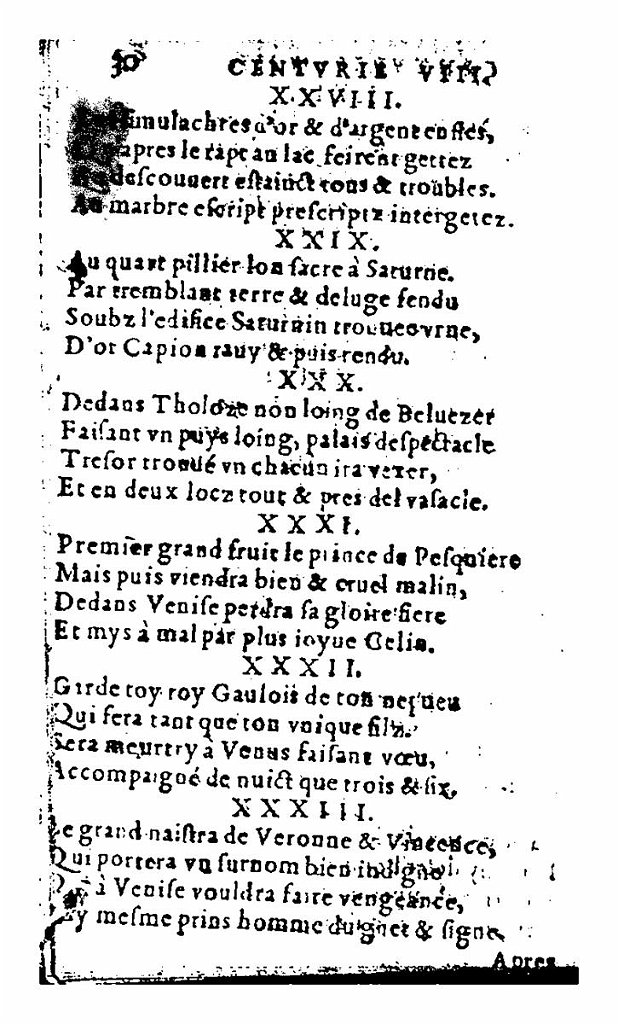 CENTVRIE VIII
XXVIII.
simulachres d'or & d'argent enflés,
apres le rapt au lac feirent gettez
descouuert estainct tous & troubles.
Au marbre escript prescriptz intergetez.
XXIX.
Au quart pillier lon sacre à Saturne.
Par tremblant terre & deluge fendu
Soubz l'edifice Saturnin trouuee vrne,
D'or Capion rauy & puis rendu.
XXX.
Dedans Tholoze non loing de Beluezer
Faisant vn puys loing, palais despectacle
Tresor trouué vn chacun ira vexer,
Et en deux locz tout & pres del vasacle.
XXXI.
Premier grand fruit le prince de Pesquiere
Mais puis viendra bien & cruel malin,
Dedans Venise perdra sa gloire fiere
Et mys à mal par plus ioyue Celin.
XXXII.
Garde toy roy Gaulois de ton nepueu
Qui fera tant que ton vnique filz.
Sera meurtry à Venus faisant vœu,
Accompaigné de nuict que trois & six.
XXXIII.
Le grand naistra de Veronne & Vincence,
Qui portera vn surnom bien indigne
Qui à Venise vouldra faire vengeance,
Luy mesme prins homme du guet & signe.
Apres